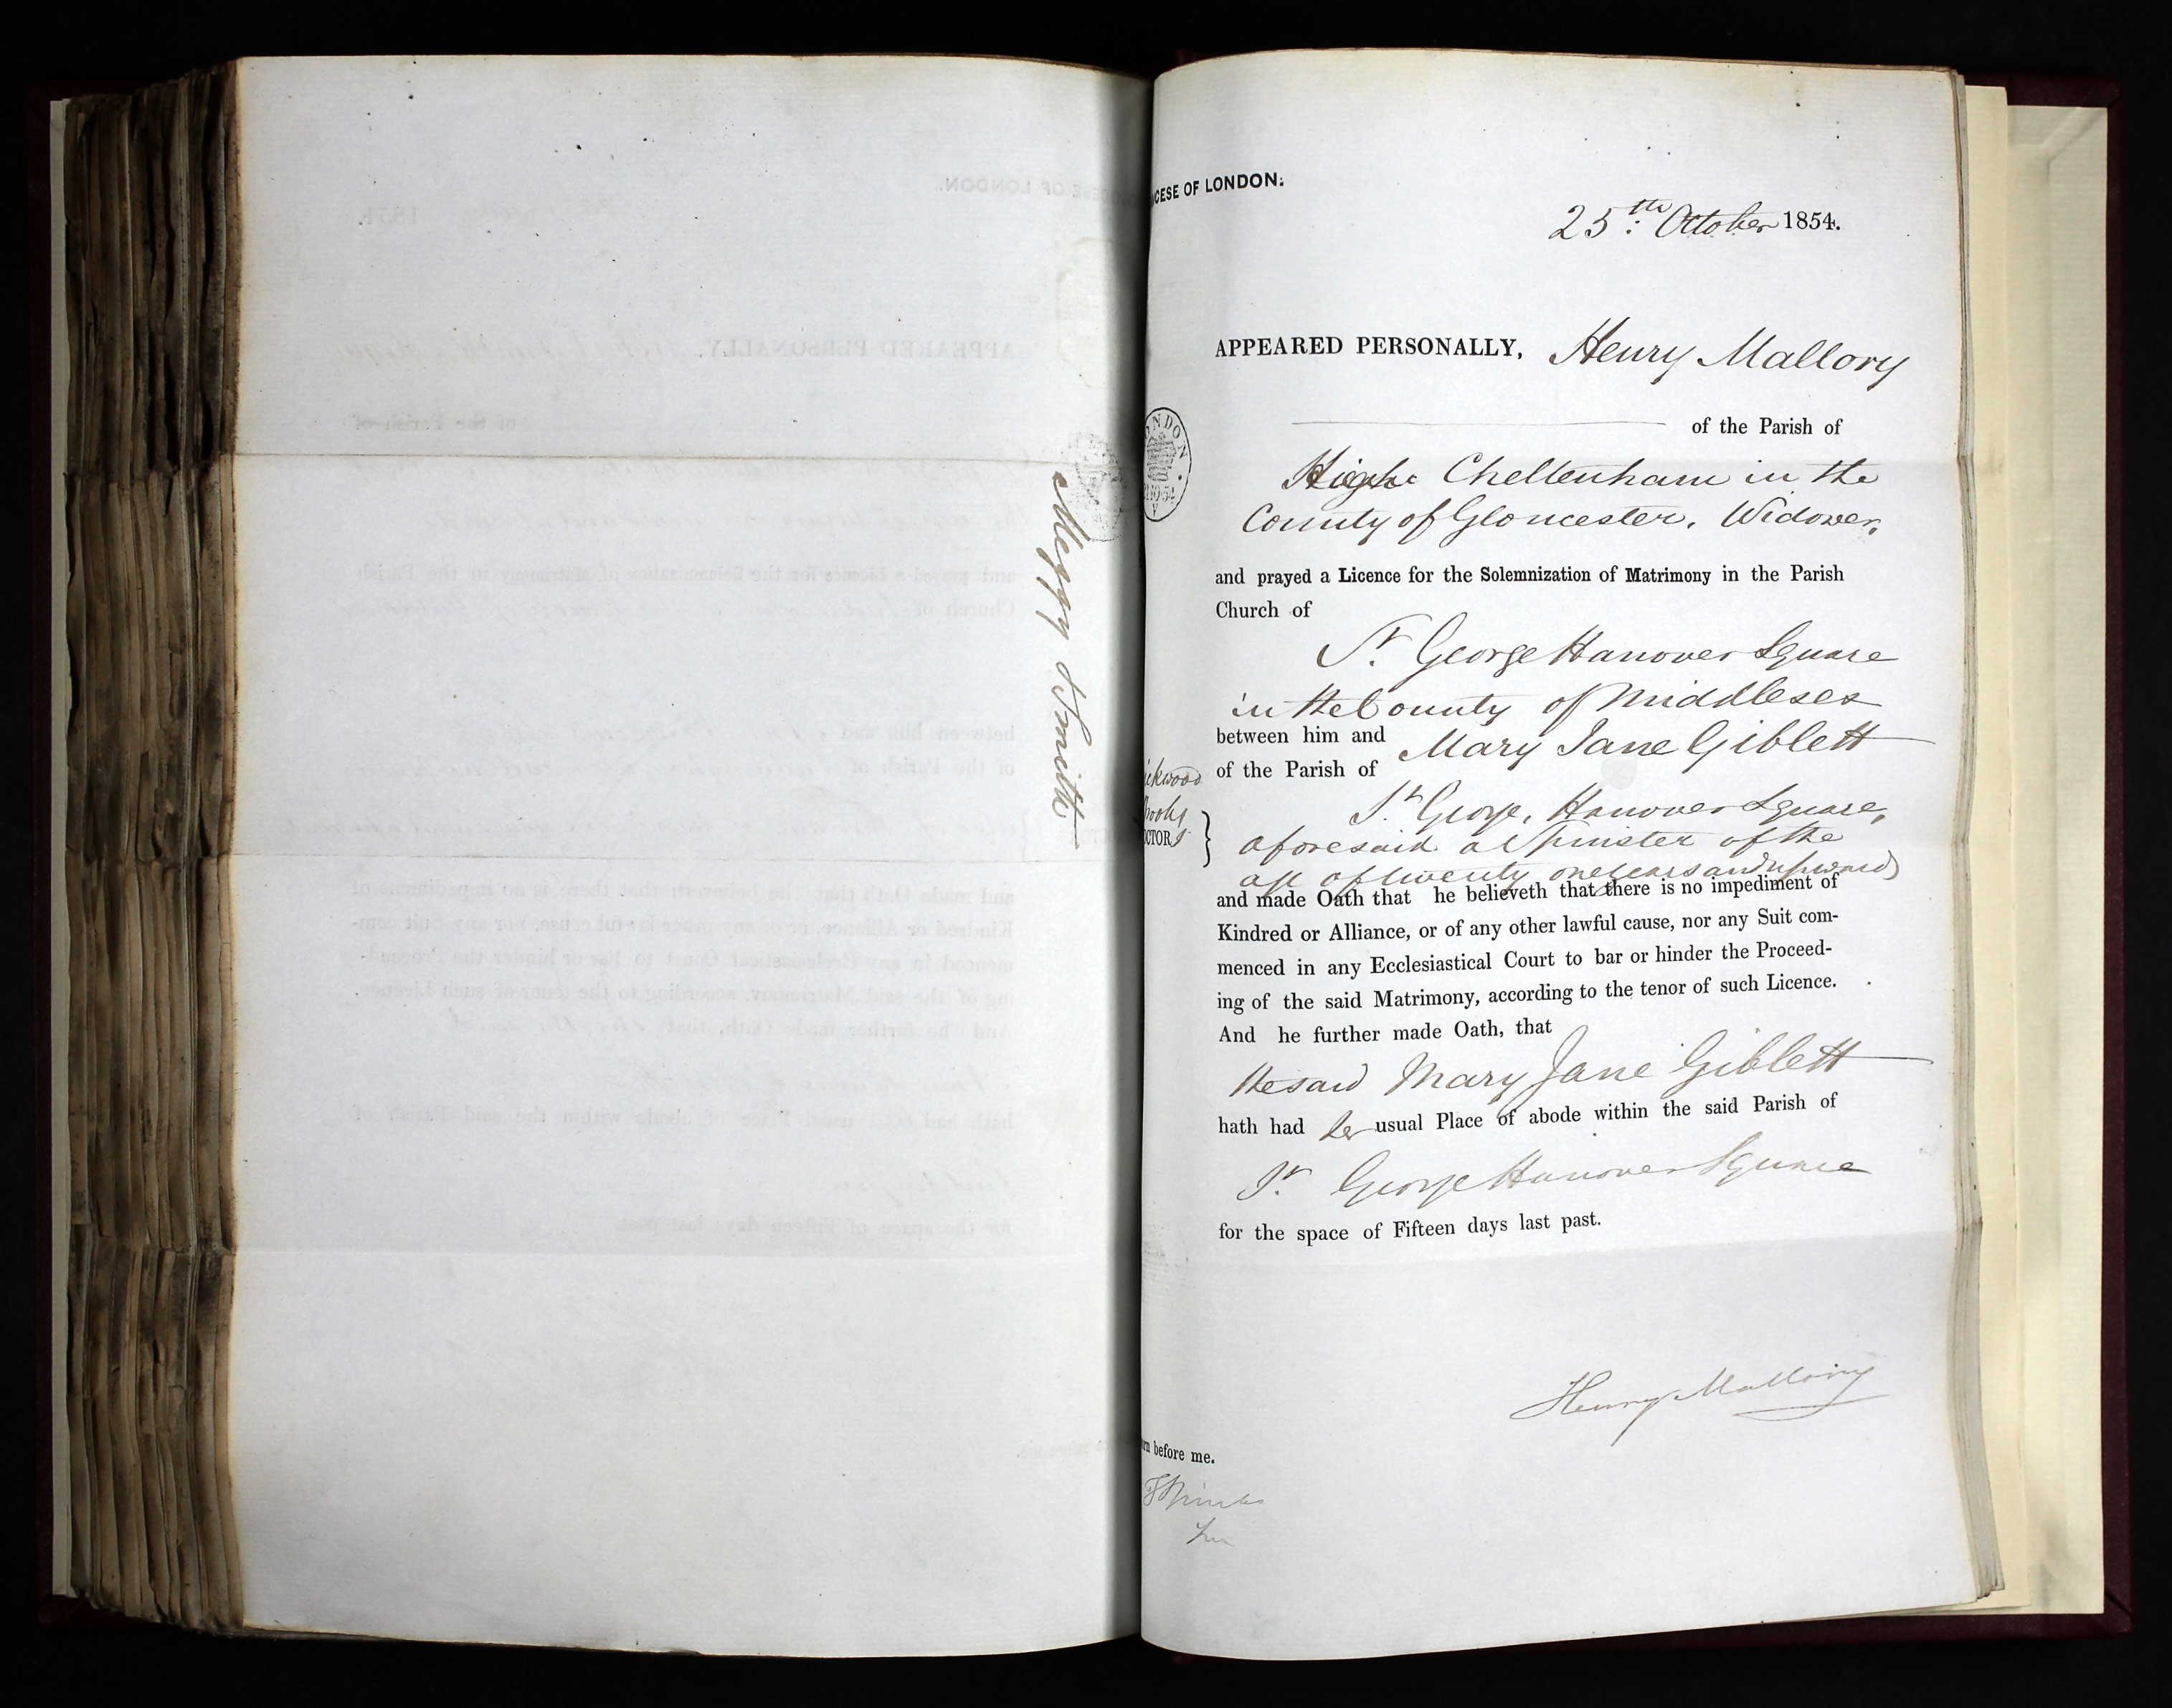 Meggy Smith
OCESE OF LONDON.
25th October 1854.
APPEARED PERSONALLY, Henry Mallory
of the Parish of
High Cheltenham in the
County of Gloucester, Widower,
and prayed a Licence for the Solemnization of Matrimony in the Parish
Church of
St. George Hanover Square
in the County of Middlesex
between him and Mary Jane Giblett
of the Parish of
St. George, Hanover Square,
aforesaid a Spinster of the
age of twenty one years and upwards
ckwood
ooks
CTORS
and made Oath that he believeth that there is no impediment of
Kindred or Alliance, or of any other lawful cause, nor any Suit com-
menced in any Ecclesiastical Court to bar or hinder the Proceed-
ing of the said Matrimony, according to the tenor of such Licence.
And he further made Oath, that
the said Mary Jane Giblett
hath had her usual Place of abode within the said Parish of
St. George Hanover Square
for the space of Fifteen days last past.
Henry Mallory
rn before me.